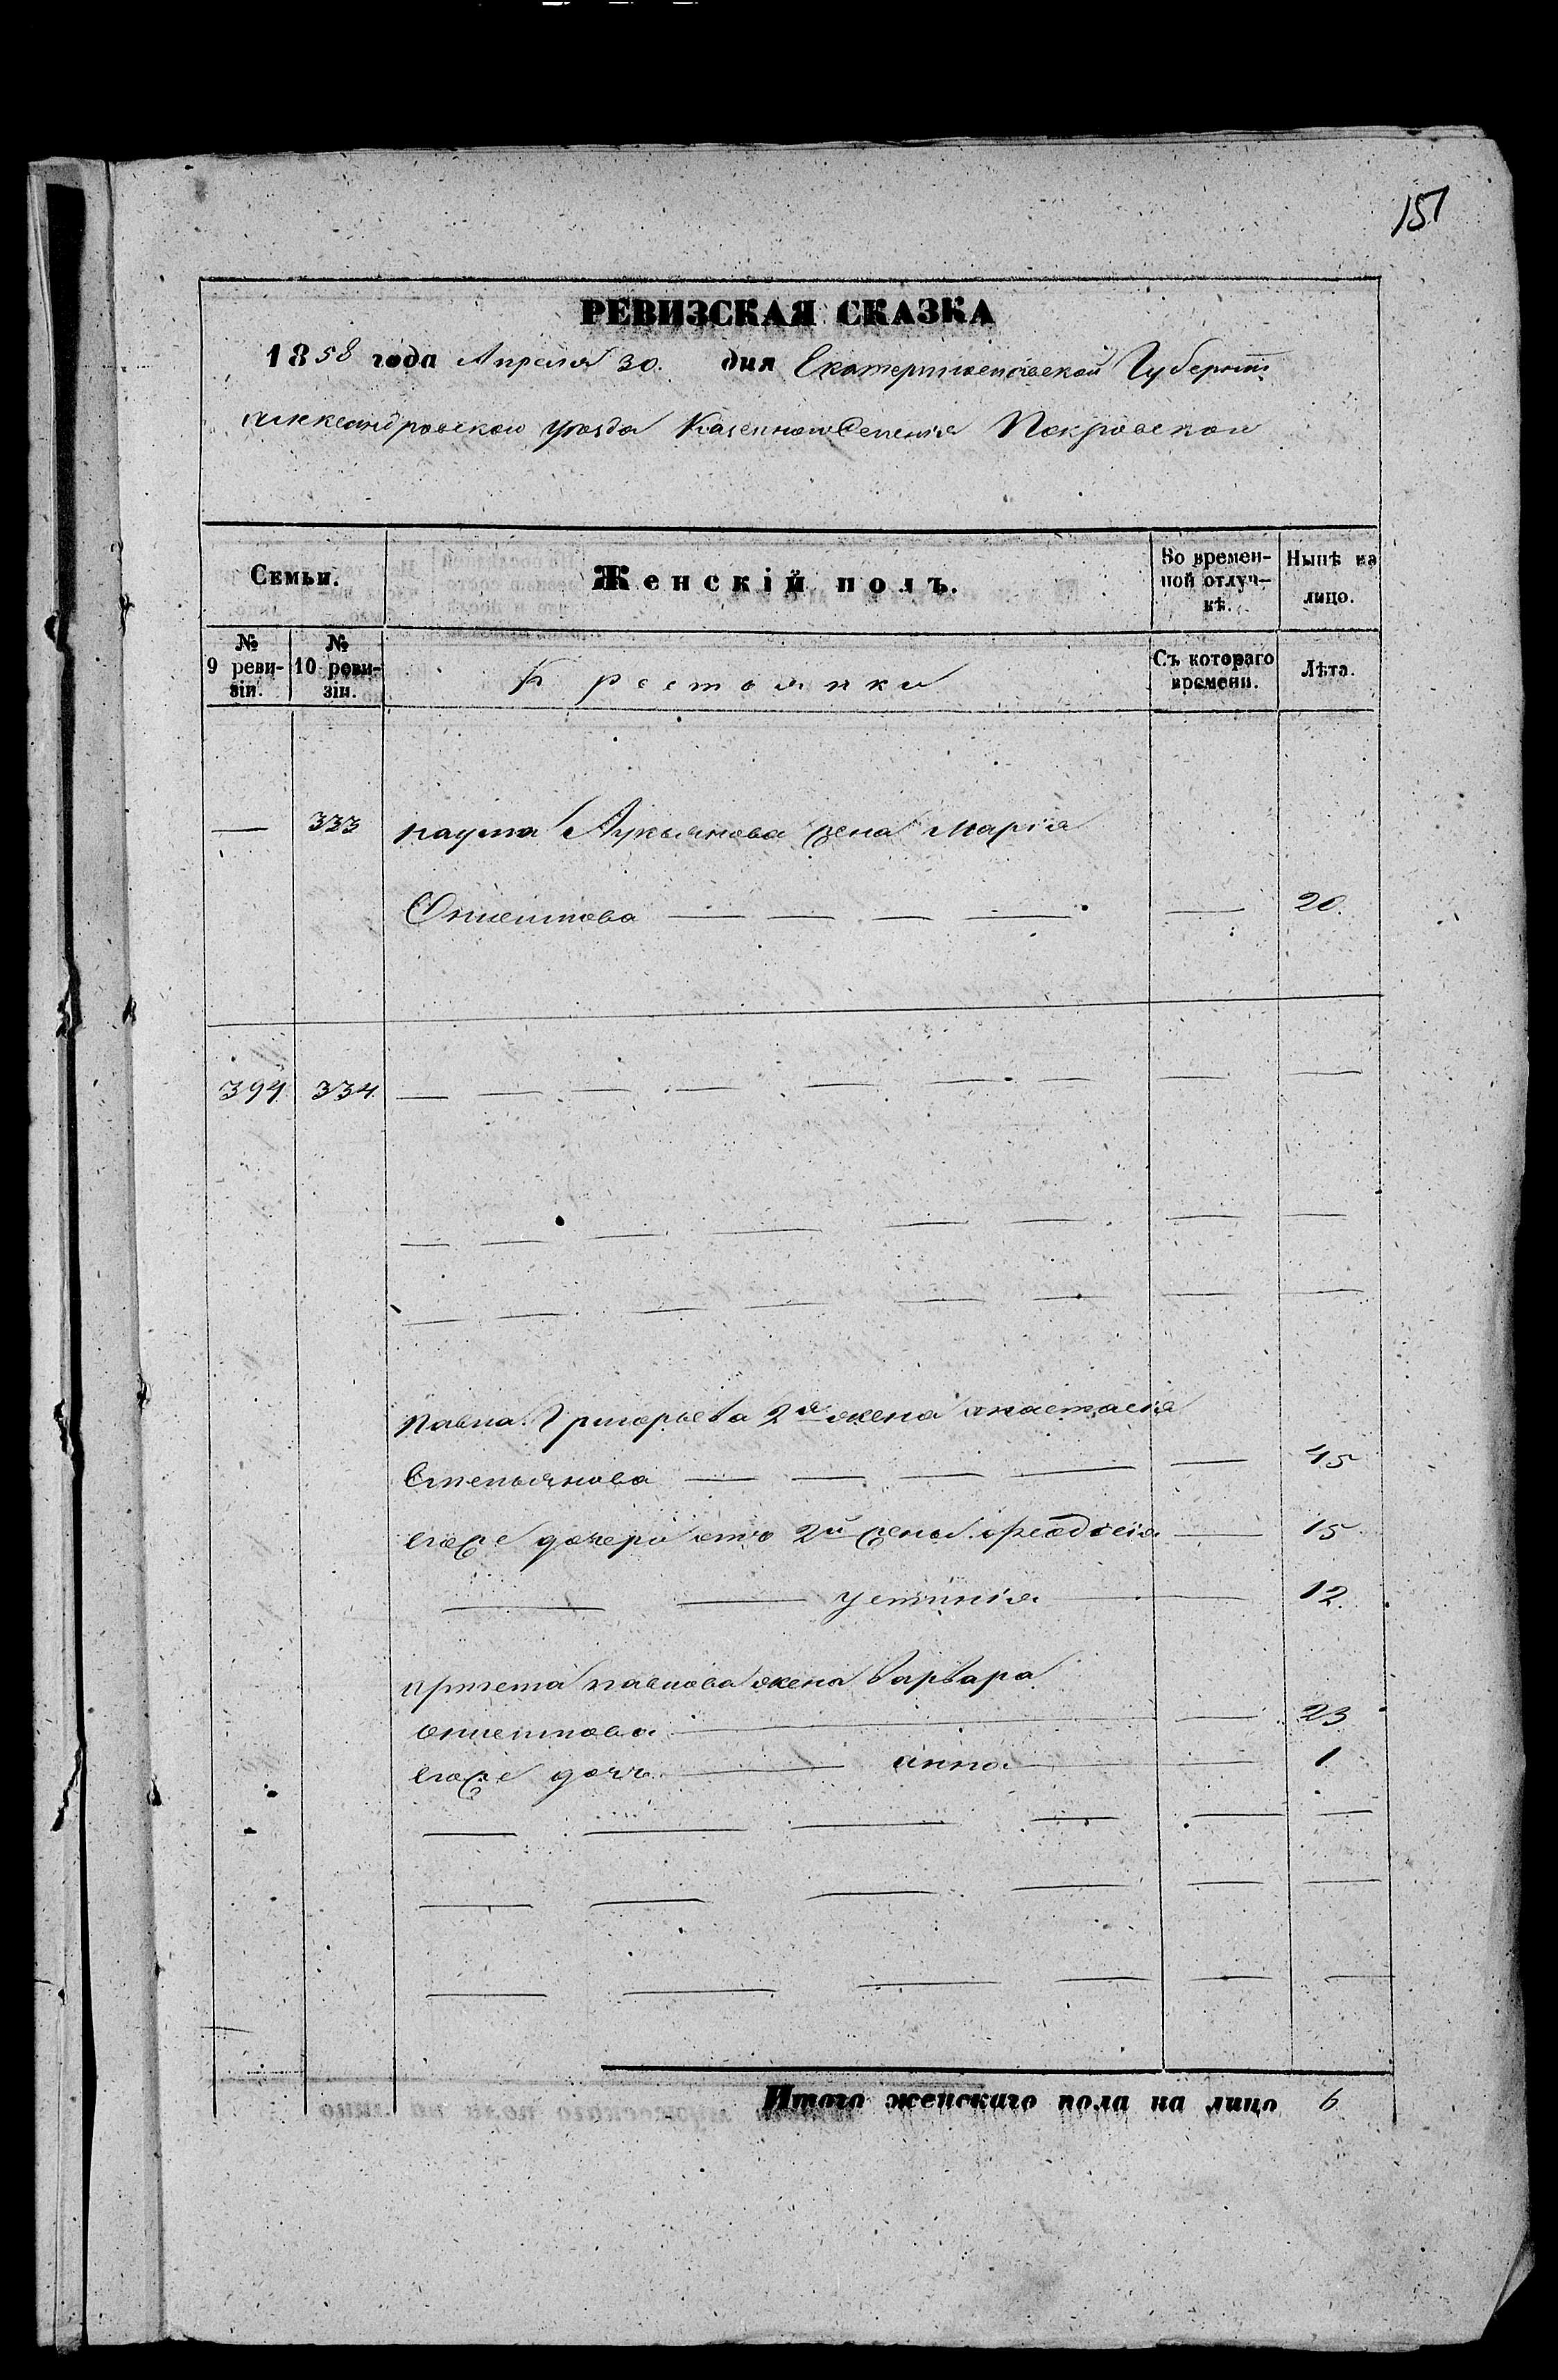 151
РЕВИЗСКАЯ СКАЗКА
1858 года Апреля 30. дня Екатеринославской Губерніи
Александровскаго уезда Казенного Селенія Покровскаго
Семьи. Женскій полъ. Во времен- ной отлуч- кѣ. Нынѣ на лицо.
№ 9 реви- зіи. № 10 реви- зіи. Крестьянки Съ котораго времени. Лѣта.
— 333 Наума Лукьянова жена Марія
— — — — — 20.
394 334 — — — — — — — —
— — — — — — — —
— — — — — — — —
Павла Григорьева 2я жена анастасія
Степанова — — — — — 45
Егоже дочери отъ 2й жены Феодосія — 15
— — Устинія — — 12.
павлова жена Варвара
— — 23
Егоже дочь — анна — — 1
— — — — — —
— — — — — —
— — — — — —
Итого женскаго пола на лицо 6